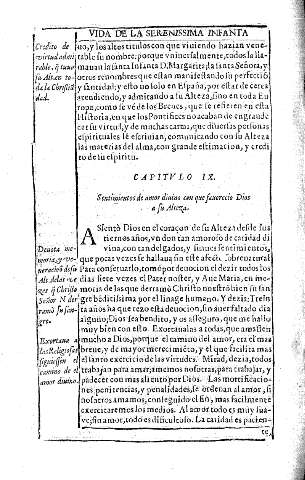 VIDA DE LA SERENISSIMA INFANTA
Credito de
virtud admi-
rable, q̃ tuuo
su Alteza to-
da la Christiã
dad.
no, y los altos titulos con que viviendo hazian vene-
table su nombre, porque vniversalmente, todos la lla-
mauan la santa Infanta D. Margarita; la santa Señora, y
otros renombres que estan manifestando su perfecciõ
y santidad; y esto no solo en España, por estar de cerca
atendiendo, y admirando a su Alteza, sino en toda Eu-
ropa, como se vè de los Breues, que se refieren en esta
Historia, en que los Pontifices no acaban de engrande
cer su virtud, y de muchas cartas, que diuersas personas
espirituales le escriuian, comunicando con su Alteza
las materias del alma, con grande estimacion, y credi-
to de su espiritu.
CAPITVLO IX.
Sentimientos de amor diuino con que fauorecio Dios
a su Alteza.
Deuota me-
moria, y ve-
neracion de su
Alteza
ge q̃ Christo
Señor N. der
ramò su san-
gre.
Exortaua a
las Religiosas
siguiessen el
camino de el
amor diuino.
ASsentò Dios en el coraçon de su Alteza desde sus
tiernos años, vn don tan amoroso de caridad di
vina, con tan delgados, y finos sentimientos,
que pocas vezes se hallaua sin este afecto sobrenatural
Para conseruarlo, tomò por deuocion el dezir todos los
dias siete vezes el Pater noster, y Aue Maria, en me-
moria de las que derramò Christo nuestro bien su san
gre beditissima por el linage humano. Y dezia: Trein
ta años ha que rezo esta deuocion, sin auer faltado dia
alguno; Dios sea bendito, y os asseguro, que me hallo
muy bien con esto. Exortaualas a todas, que amassen
mucho a Dios, porque el camino del amor, era el mas
breue, y de mayor merecimiẽto, y el que facilita mas
el santo exercicio de las virtudes. Mirad, dezia, todos
trabajan para amar; amemos nosotras, para trabajar, y
padecer con mas aliento por Dios. Las mortificacio-
nes penitencias, y penalidades, se ordenan al amor, si
nosotros amamos, conseguido el fin, mas facilmente
exercitaremos los medios. Al amor todo es muy sua-
ve; sin amor, todo es dificultoso. La caridad es pacien-
te,